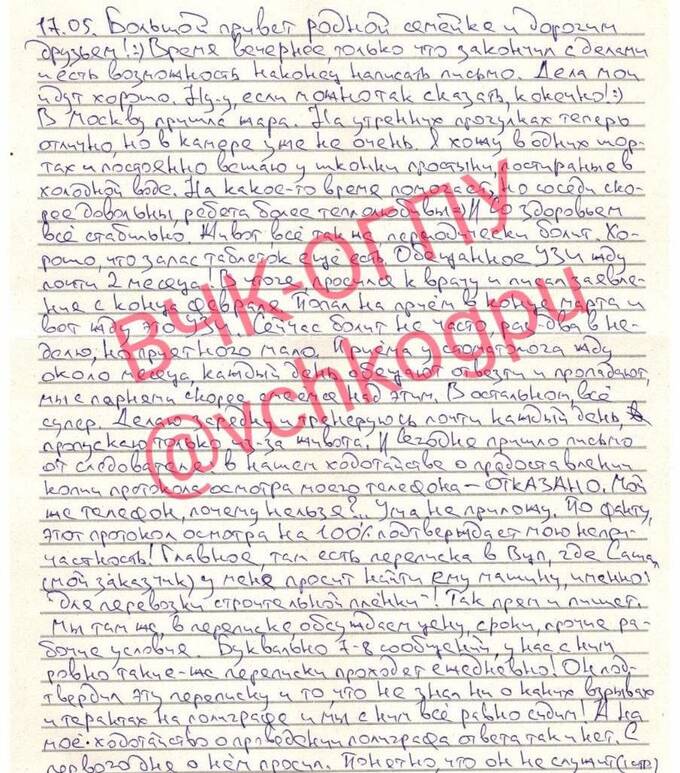 17.05. Большой привет родной семейке и дорогим
друзьям!:) Время вечернее, только что закончил с делами
и есть возможность наконец написать письмо. Дела мои
идут хорошо. Ну-у, если можно так сказать, конечно!:)
В Москву пришла жара. На утренних прогулках теперь
отлично, но в камере уже не очень. Я хожу в одних шор-
тах и постоянно вешаю у шконки простыни, постираные в
холодной воде. На какое-то время помогает, но соседи ско-
рее довольны, ребята более теплолюбивы=) И со здоровьем
всё стабильно. Живот, всё так же, периодически болит. Хо-
рошо, что запас таблеток ещё есть. Обещанное УЗИ жду
почти 2 месяца! В итоге, просился к врачу и писал заявле-
ния с конца февраля. Попал на приём в конце марта и
вот жду это УЗИ. Сейчас болит не часто, раз-два в не-
делю, но приятного мало. Приёма у стоматолога жду
около месяца, каждый день обещают отвезти и пропадают,
мы с парнями скорее смеемся над этим. В остальном, всё
супер. Делаю зарядку и тренеруюсь почти каждый день,
пропускаю только из-за живота. И сегодня пришло письмо
от следователя: в нашем ходотайстве о предоставлении
копии протокола осмотра моего телефона - ОТКАЗАНО. Мой
же телефон, почему нельзя?.. Ума не приложу. По факту,
этот протокол осмотра на 100% подтверждает мою непри-
частность! Главное, там есть переписка в Вцп, где Саша
(мой заказчик) у меня просит найти ему машину, именно:
"для перевозки строительной плёнки"! Так прям и пишет.
Мы там же, в переписке обсуждаем цену, сроки, прочие ра-
бочие условия. Буквально 7-8 сообщений, у нас с ним
ровно такие-же переписки проходят ежедневно! Он под-
твердил эту переписку и то, что не знал ни о каких взрывах
и терактах на полиграфе и мы с ним всё равно сидим! А на
моё ходотайство о проведении полиграфа ответа так и нет. С
первого дня о нём просил. Понятно, что он не служит (1 стр)
ВЧК-ОГПУ
@vchkogpu